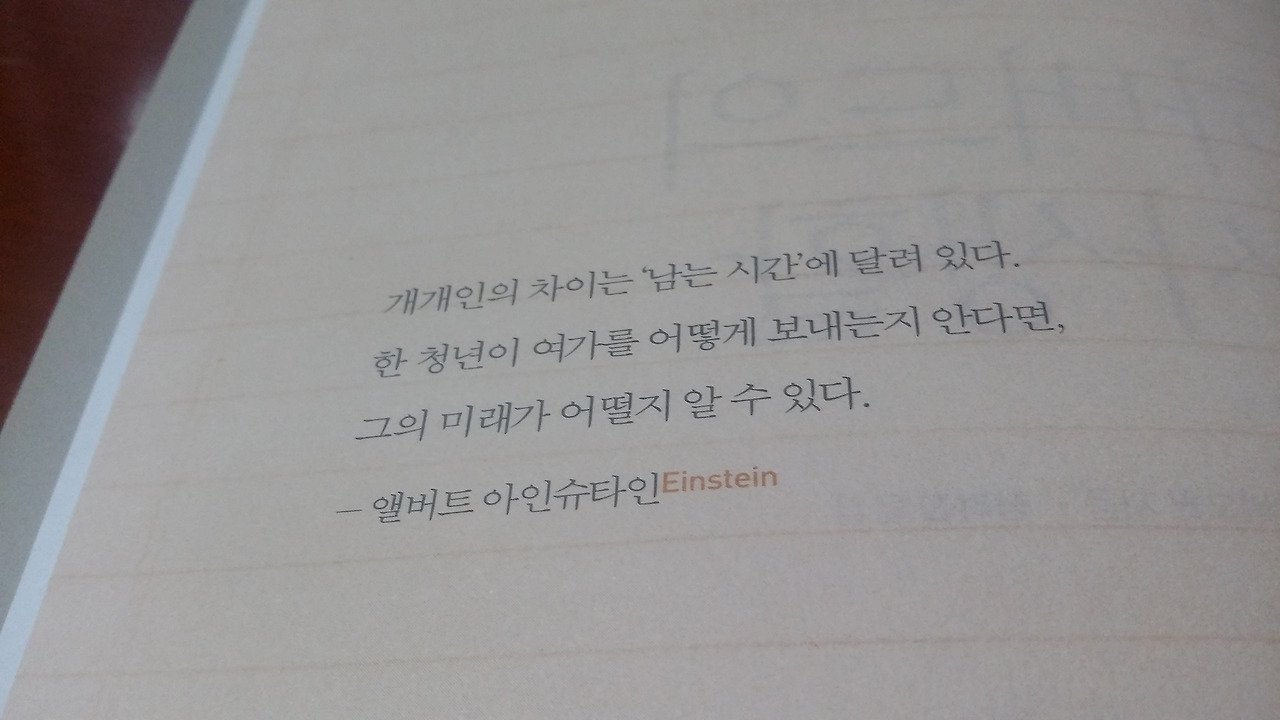 개개인의 차이는 ‘남는 시간’에 달려 있다.
한 청년이 여가를 어떻게 보내는지 안다면,
그의 미래가 어떨지 알 수 있다.
– 앨버트 아인슈타인Einstein